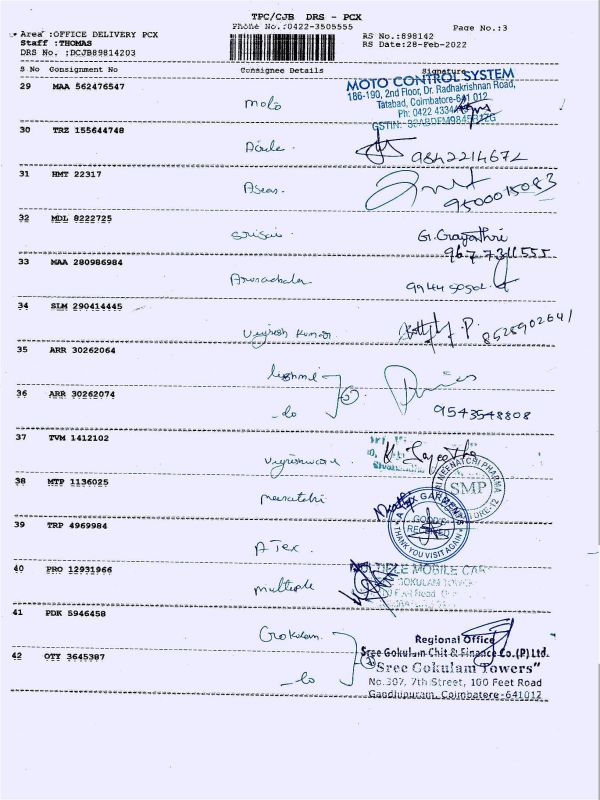 TPC/CJB DRS - PCX
Phone No.:0422-3505555
Page No.:3
Area :OFFICE DELIVERY PCX
Staff :THOMAS
DRS No. :DCJB89814203
RS No.:898142
RS Date:28-Feb-2022
S No Consignment No Consignee Details Signature
29 MAA 562476547 moto
MOTO CONTROL SYSTEM
186-190, 2nd Floor, Dr. Radhakrishnan Road,
Tatabad, Coimbatore-641 012
Ph: 0422 4334
GSTIN:
30 TRZ 155644748
9842214672
31 HMT 22317
9500015083
32 MDL 8222725 srisai
G. Gayathri
9677311555
33 MAA 280986984 Arunachala
99445
34 SLM 290414445 Vignesh Kumar
8528902641
35 ARR 30262064 lakshmi
36 ARR 30262074 -do
9543548808
37 TVM 1412102 Vigneshwara
38 MTP 1136025 meenatchi
MEENATCHI PHARMA
SMP
39 TRP 4969984 A Tex
GARMENTS
GOODS
RECEIVED
THANK YOU VISIT AGAIN
40 PRO 12931966 multiple
MULTIPLE MOBILE CARE
GOKULAM TOWER
41 PDK 5946458 Gokulam
42 OTY 3645387 -do
Regional Office
Sree Gokulam Chit & Finance Co.(P) Ltd.
"Sree Gokulam Towers"
No.307, 7th Street, 100 Feet Road
Gandhipuram, Coimbatore-641012